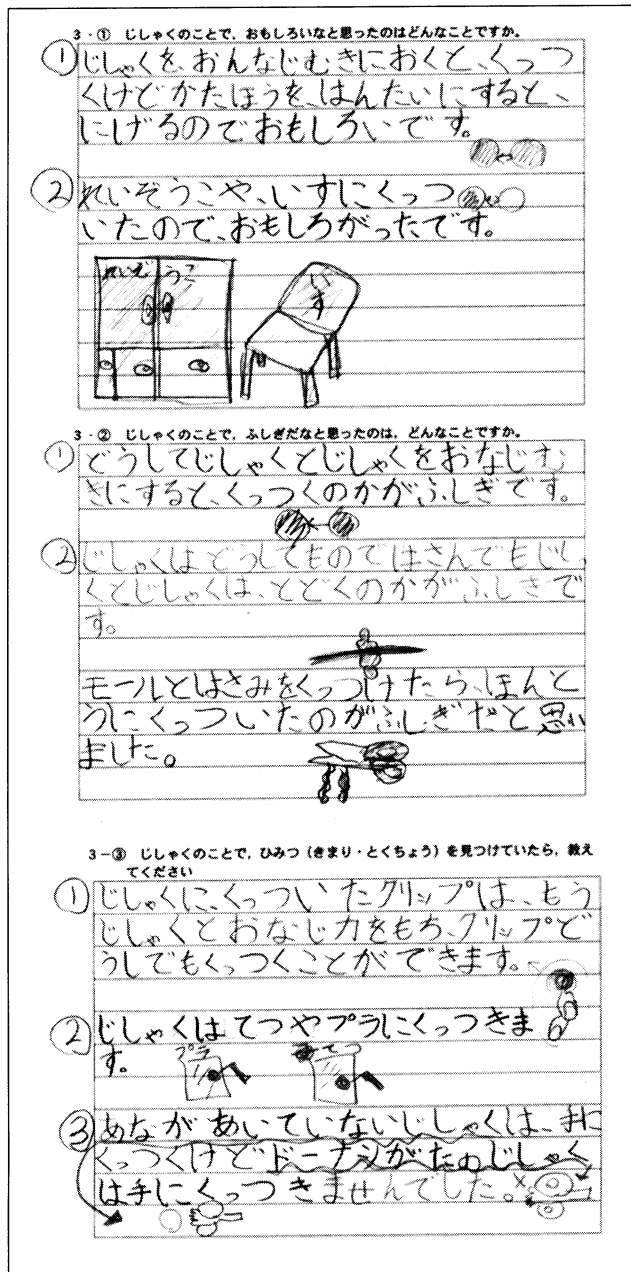 3-① じしゃくのことで，おもしろいなと思ったのはどんなことですか。
① じしゃくを、おんなじむきにおくと、くっつ
くけどかたほうを、はんたいにすると、
にげるのでおもしろいです。
② れいぞうこや、いすにくっつ
いたので、おもしろがったです。
れいぞうこ
いす
3-② じしゃくのことで，ふしぎだなと思ったのは，どんなことですか。
① どうしてじしゃくとじしゃくをおなじむ
きにすると、くっつくのかがふしぎです。
② じしゃくはどうしてものではさんでもじし
くとじしゃくは、とどくのかがふしきで
す。
モールとはさみをくっつけたら、ほんと
うにくっついたのがふしぎだと思い
ました。
3-③ じしゃくのことで，ひみつ（きまり・とくちょう）を見つけていたら，教え
てください
① じしゃくに、くっついたクリップは、もう
じしゃくとおなじ力をもち、クリップど
うしでもくっつくことができます。
② じしゃくはてつやプラにくっつきま
す。
プラ
てつ
③ あながあいていないじしゃくは、手に
くっつくけどドーナツがたのじしゃく
は手にくっつきませんでした。